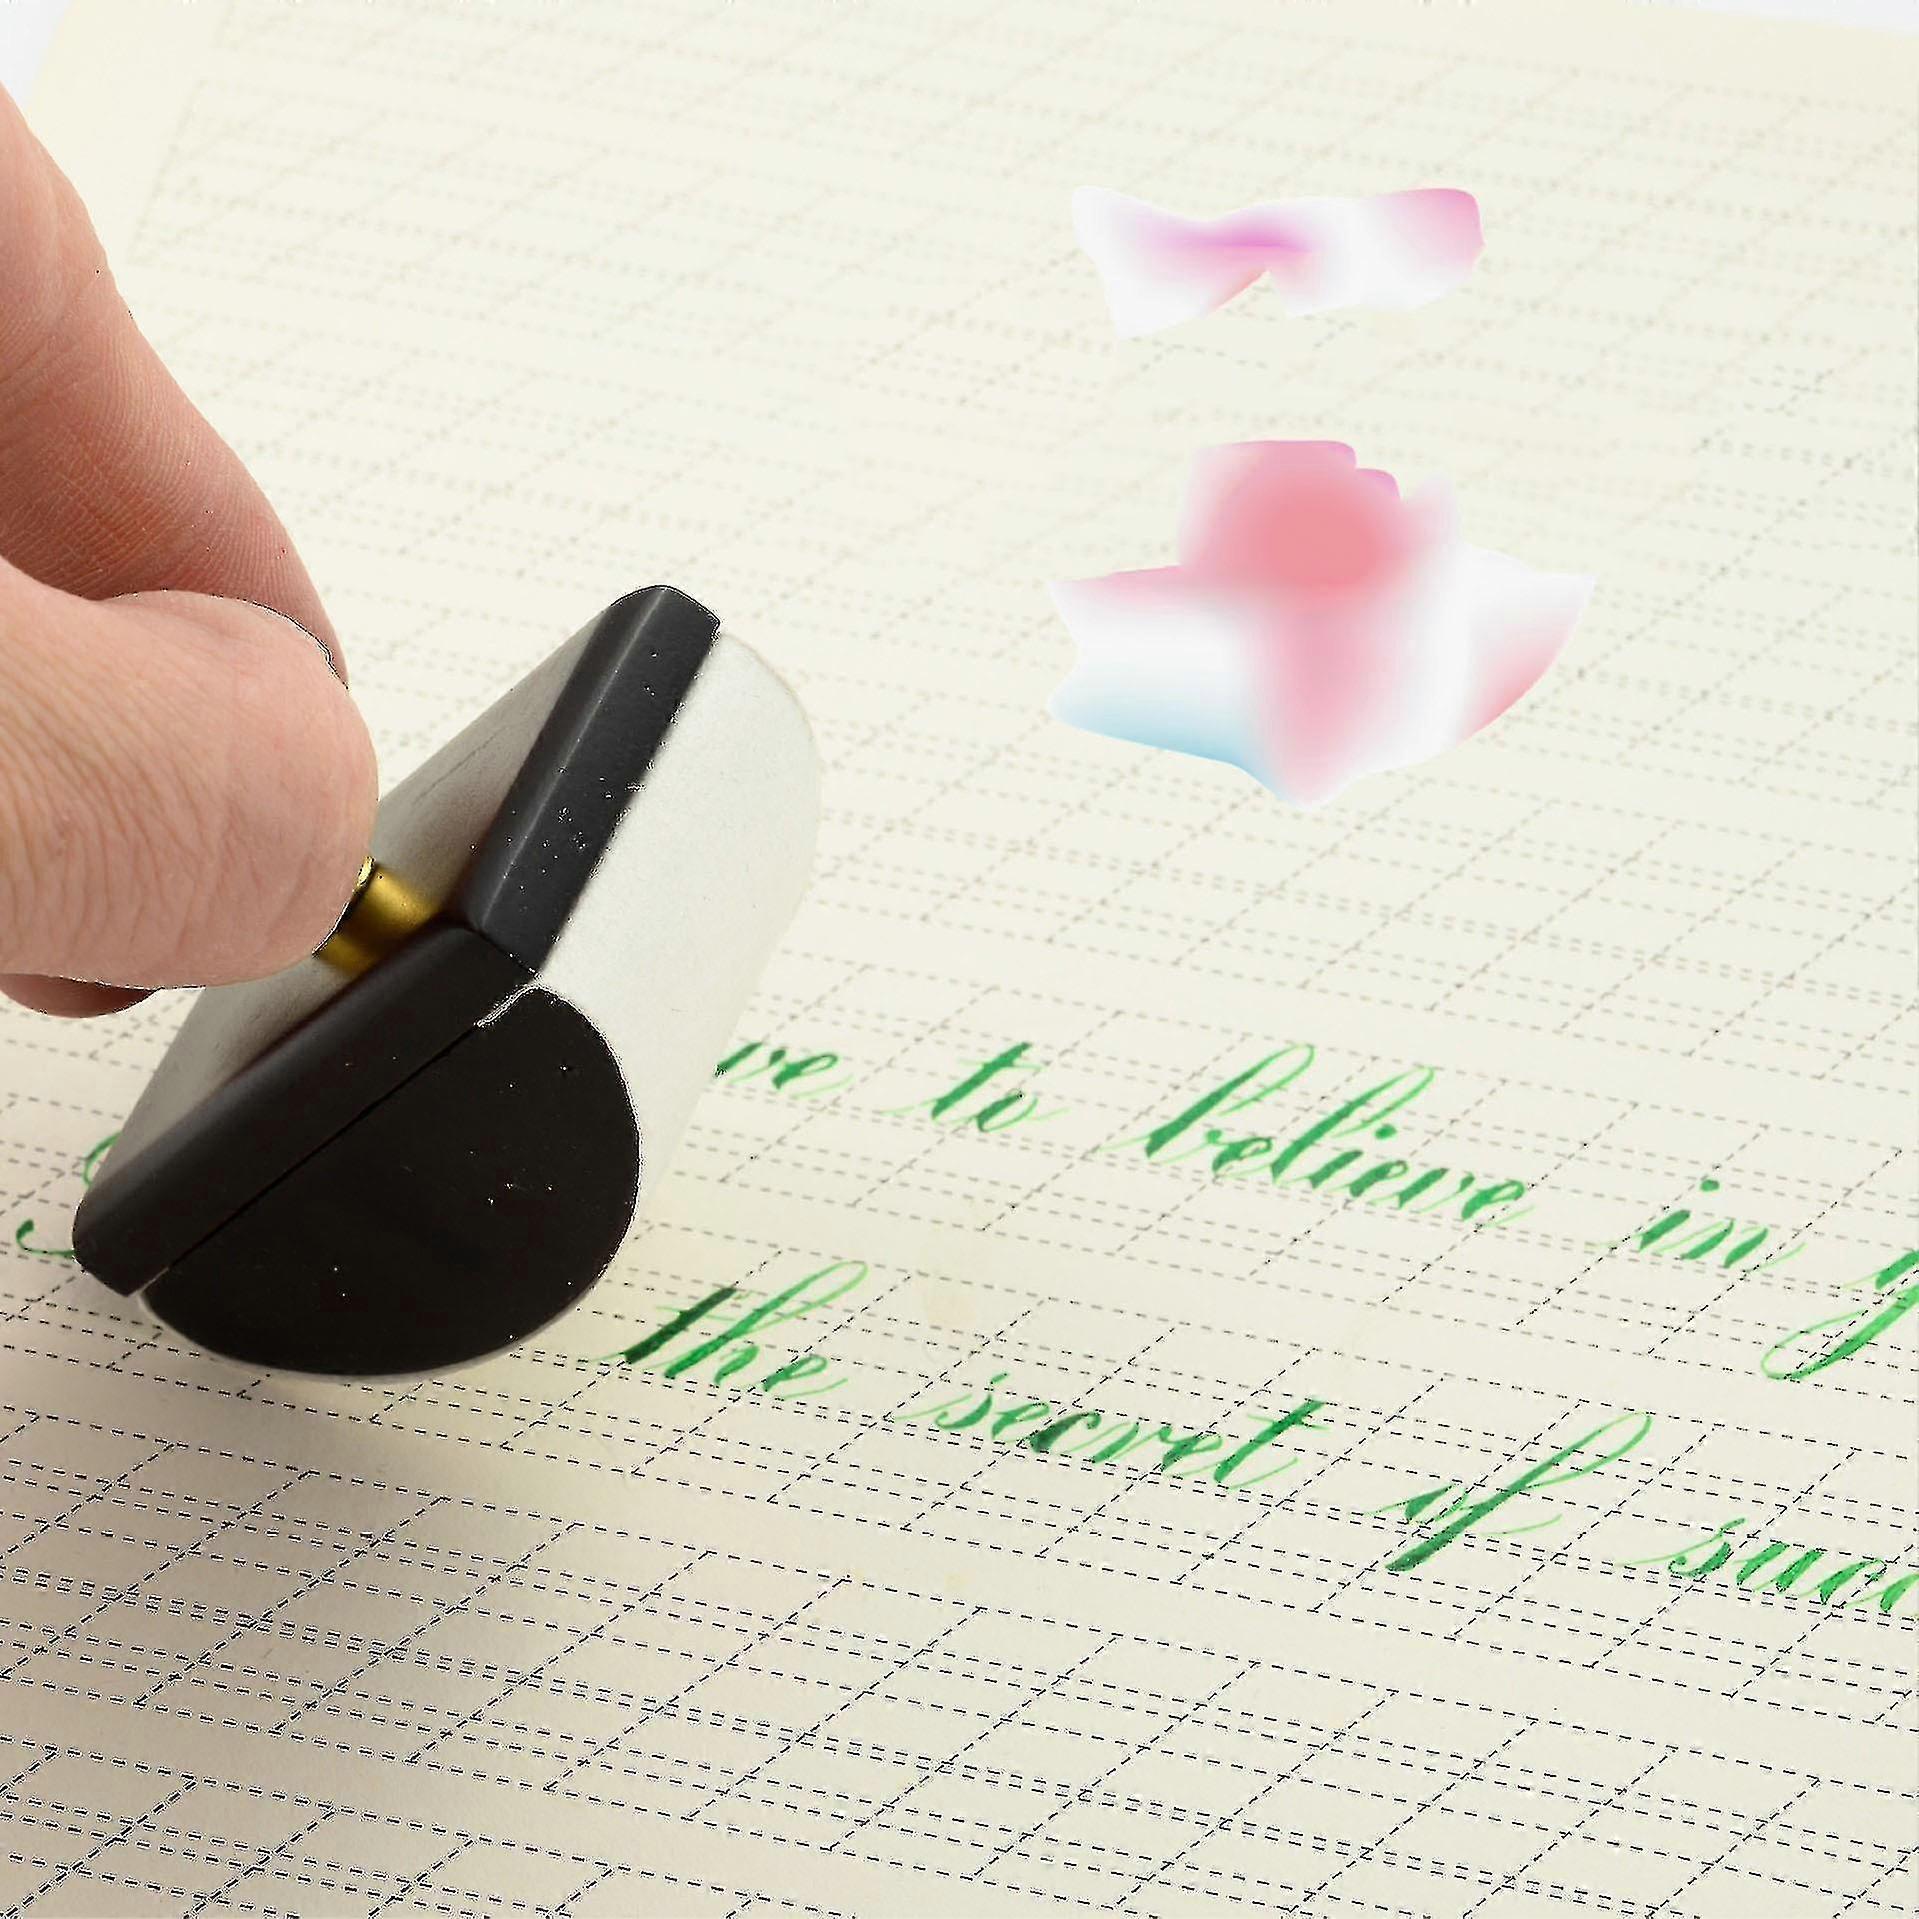 ve to believe in
the secret of